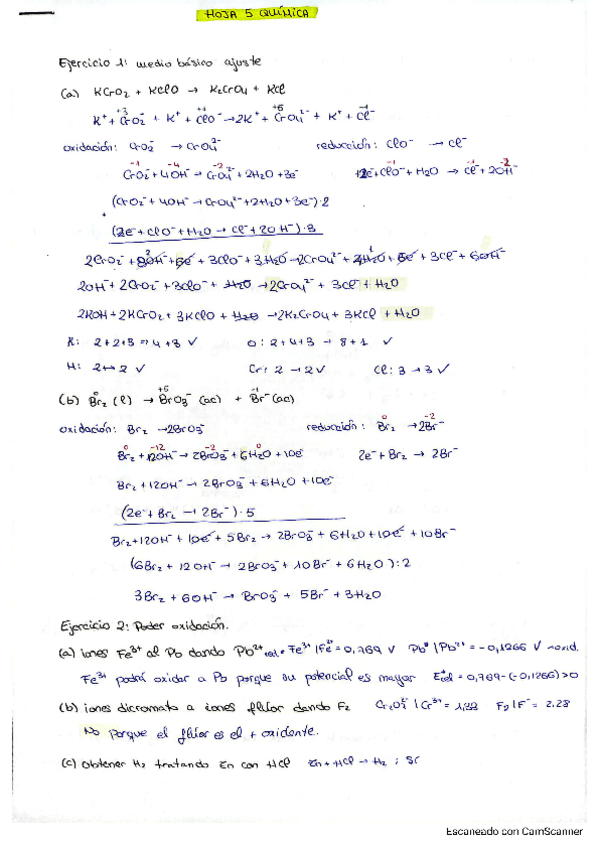 HOJA 5 QUÍMICA
Ejercicio 1: medio básico ajuste
(a) KCrO₂ + KClO → K₂CrO₄ + KCl
K⁺ + CrO₂⁻ + K⁺ + ClO⁻ → 2K⁺ + CrO₄²⁻ + K⁺ + Cl⁻
oxidación: CrO₂⁻ → CrO₄²⁻ reducción: ClO⁻ → Cl⁻
CrO₂⁻ + 4OH⁻ → CrO₄²⁻ + 2H₂O + 3e⁻ 2e⁻ + ClO⁻ + H₂O → Cl⁻ + 2OH⁻
(CrO₂⁻ + 4OH⁻ → CrO₄²⁻ + 2H₂O + 3e⁻)·2
(2e⁻ + ClO⁻ + H₂O → Cl⁻ + 2OH⁻)·3
2CrO₂⁻ + 8OH⁻ + 6e⁻ + 3ClO⁻ + 3H₂O → 2CrO₄²⁻ + 4H₂O + 6e⁻ + 3Cl⁻ + 6OH⁻
2OH⁻ + 2CrO₂⁻ + 3ClO⁻ + H₂O → 2CrO₄²⁻ + 3Cl⁻ + H₂O
2KOH + 2KCrO₂ + 3KClO + H₂O → 2K₂CrO₄ + 3KCl + H₂O
K: 2+2+3 => 4+3 ✓ O: 2+4+3 → 8+1 ✓
H: 2 → 2 ✓ Cr: 2 → 2 ✓ Cl: 3 → 3 ✓
(b) Br₂ (l) → BrO₃⁻ (ac) + Br⁻ (ac)
oxidación: Br₂ → 2BrO₃⁻ reducción: Br₂ → 2Br⁻
Br₂ + 12OH⁻ → 2BrO₃⁻ + 6H₂O + 10e⁻ 2e⁻ + Br₂ → 2Br⁻
Br₂ + 12OH⁻ → 2BrO₃⁻ + 6H₂O + 10e⁻
(2e⁻ + Br₂ → 2Br⁻)·5
Br₂ + 12OH⁻ + 10e⁻ + 5Br₂ → 2BrO₃⁻ + 6H₂O + 10e⁻ + 10Br⁻
(6Br₂ + 12OH⁻ → 2BrO₃⁻ + 10Br⁻ + 6H₂O):2
3Br₂ + 6OH⁻ → BrO₃⁻ + 5Br⁻ + 3H₂O
Ejercicio 2: Poder oxidación.
(a) iones Fe³⁺ al Pb dando Pb²⁺ Fe³⁺|Fe²⁺ = 0,769 V Pb⁰|Pb²⁺ = -0,1266 V
Fe³⁺ podrá oxidar a Pb porque su potencial es mayor = 0,769 - (-0,1266) > 0
(b) iones dicromato a iones flúor dando F₂ Cr₂O₇²⁻|Cr³⁺ = 1,33 F₂|F⁻ = 2.28
No porque el flúor es el + oxidente.
(c) Obtener H₂ tratando Zn con HCl Zn + HCl → H₂ ; Sí
Escaneado con CamScanner